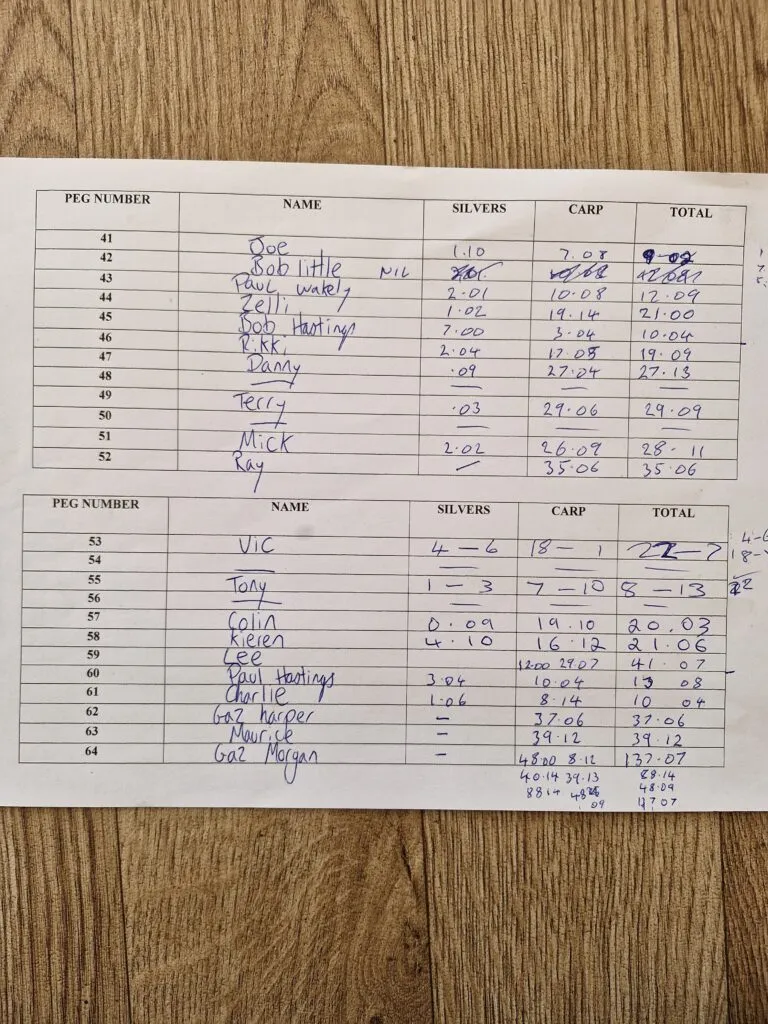 PEG NUMBER NAME SILVERS CARP TOTAL
41 Joe 1.10 7.08 9-02
42 Bob little NIL
43 Paul wakely 2.01 10.08 12.09
44 Zelli 1.02 19.14 21.00
45 Bob Hastings 7.00 3.04 10.04
46 Rikki 2.04 17.05 19.09
47 Danny .09 27.04 27.13
48 — — — —
49 Terry .03 29.06 29.09
50 — — — —
51 Mick 2.02 26.09 28-11
52 Ray / 35.06 35.06
PEG NUMBER NAME SILVERS CARP TOTAL
53 Vic 4-6 18-1 22-7
54 — — — —
55 Tony 1-3 7-10 8-13
56 — — — —
57 Colin 0.09 19.10 20.03
58 Kieren 4.10 16.12 21.06
59 Lee 12.00 29.07 41.07
60 Paul Hastings 3.04 10.04 13 08
61 Charlie 1.06 8.14 10 04
62 Gaz harper - 37.06 37.06
63 Maurice - 39.12 39.12
64 Gaz Morgan - 48.00 8.12 137.07
40.14 39.13 88.14
88 14 48.09
09